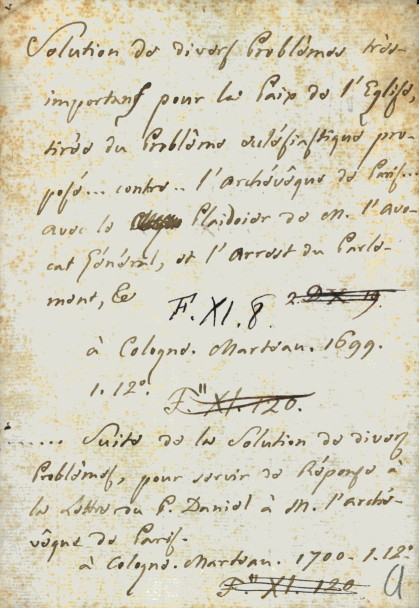 Solution de divers Problêmes très
importans pour la Paix de l'Eglise,
tirée du Problême ecclésiastique pro-
posé... contre.. l'archévêque de Paris...
avec le Plaidoier de M. l'avo-
cat Général, et l'Arrest du Parle-
ment, &c
F. XI. 8. 2. D X 19.
à Cologne. Marteau. 1699.
1. 12°.
F." XI. 120.
...... Suite de la Solution de divers
Problêmes, pour servir de Réponse à
la Lettre du P. Daniel à M. l'arché-
vêque de Paris.
à Cologne. Marteau. 1700. 1. 12°.
F." XI. 120
a